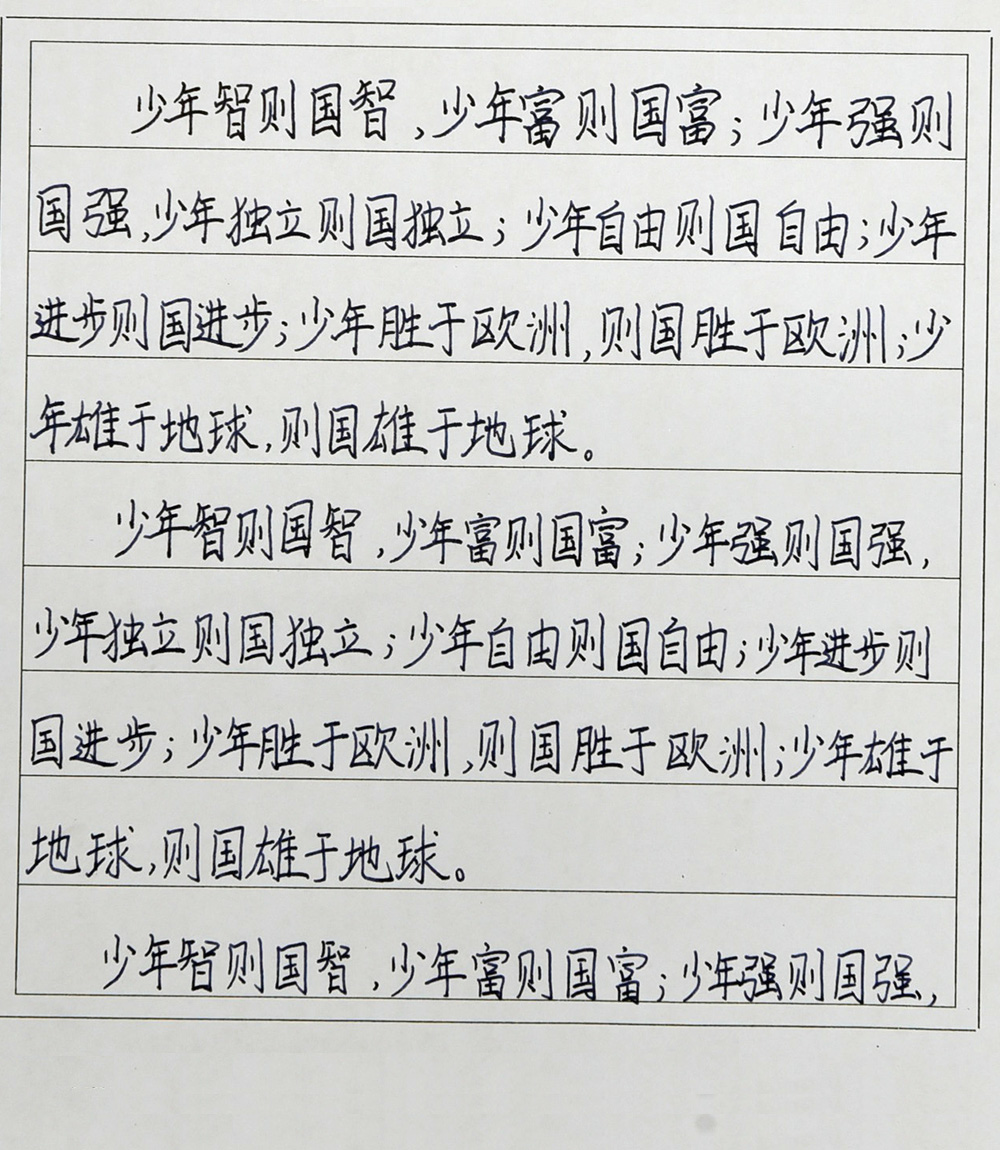 少年智则国智,少年富则国富;少年强则
国强,少年独立则国独立;少年自由则国自由;少年
进步则国进步;少年胜于欧洲,则国胜于欧洲;少
年雄于地球,则国雄于地球。
少年智则国智,少年富则国富;少年强则国强,
少年独立则国独立;少年自由则国自由;少年进步则
国进步;少年胜于欧洲,则国胜于欧洲;少年雄于
地球,则国雄于地球。
少年智则国智,少年富则国富;少年强则国强,